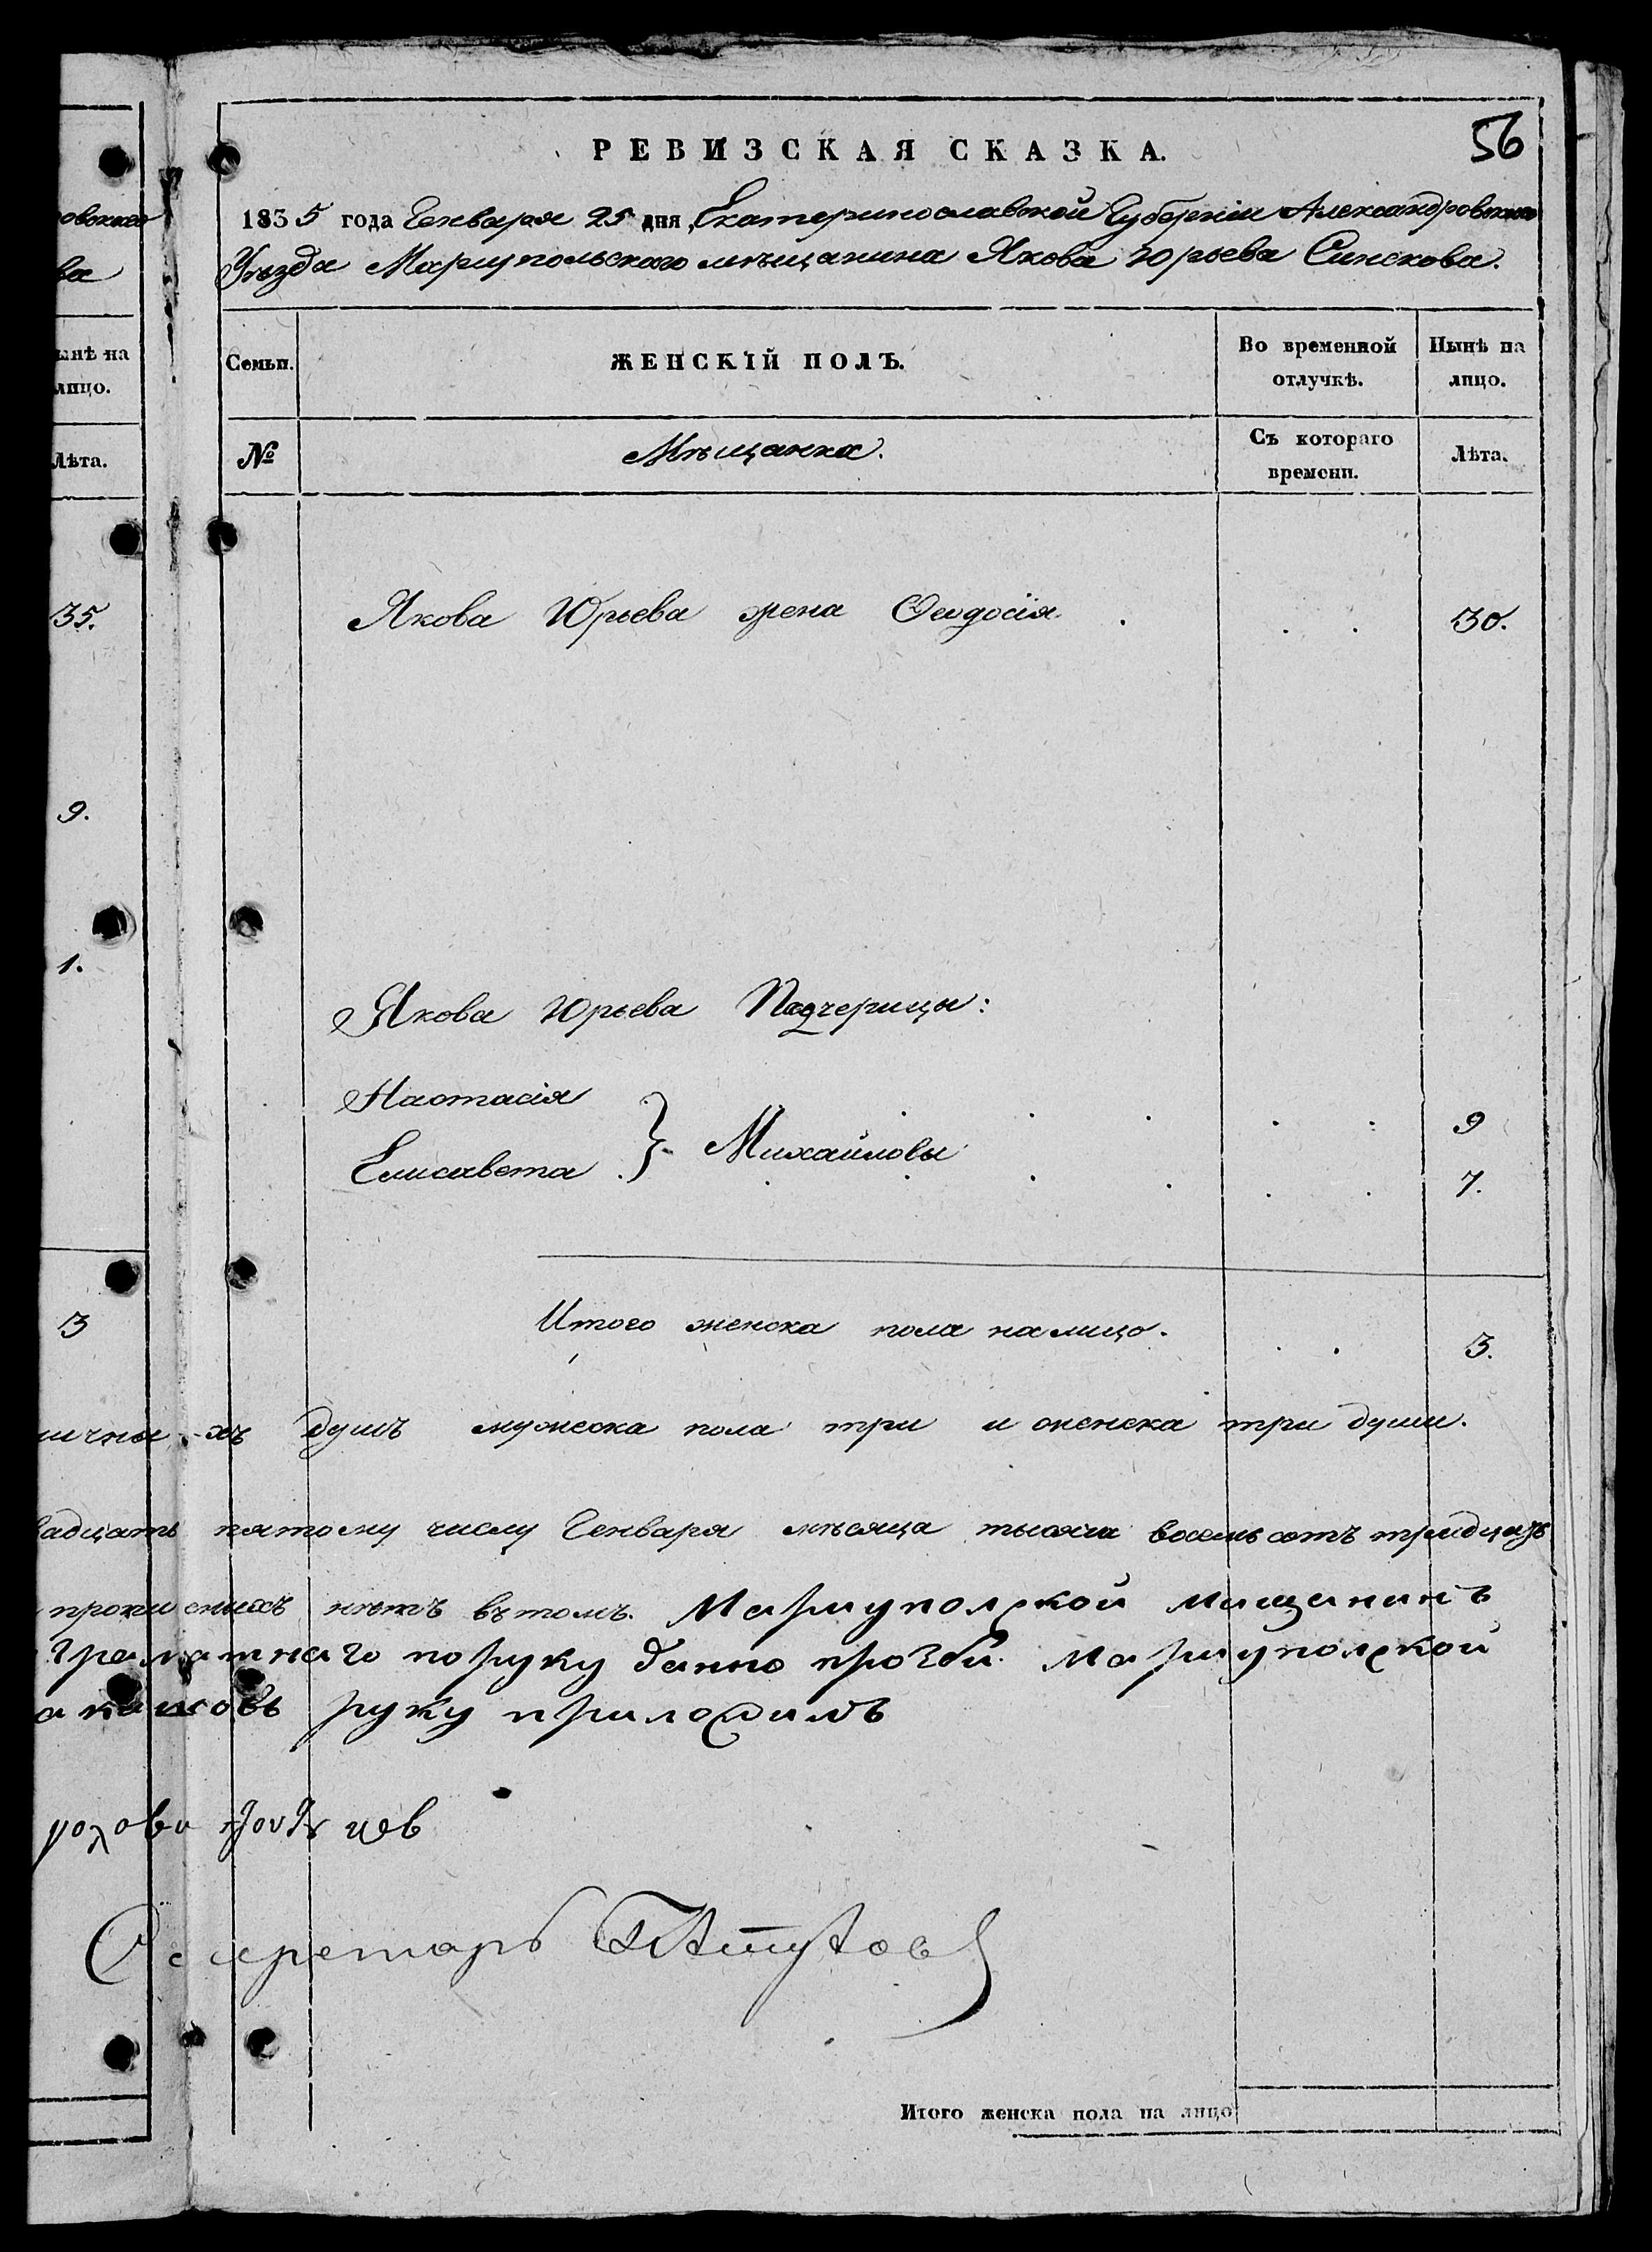 56
РЕВИЗСКАЯ СКАЗКА.
1835 года Генваря 25 дня, Екатеринославской Губерніи Александровскаго
Уѣзда Маріупольскаго мѣщанина Якова Юрьева Синскова.
Семьи. ЖЕНСКІЙ ПОЛЪ. Во временной отлучкѣ. Нынѣ на лицо.
№ Мѣщанка. Съ котораго времени. Лѣта.
Якова Юрьева жена Ѳеодосія. 30.
Якова Юрьева Падчерицы:
Настасія 9
Елисавета } Михайловы 7.
Итого женска пола налицо. 3.
хъ душъ мужеска пола три и женска три души.
пятому числу Генваря мѣсяца тысяча восемьсотъ тридцать
нѣтъ вътомъ. Мариуполской мищанинъ
граматнаго поруку данно прозби Мариуполской
руку приложилъ
Секретарь
Итого женска пола на лицо
овскаго
ва
ынѣ на
лицо.
Лѣта.
35.
9.
1.
3